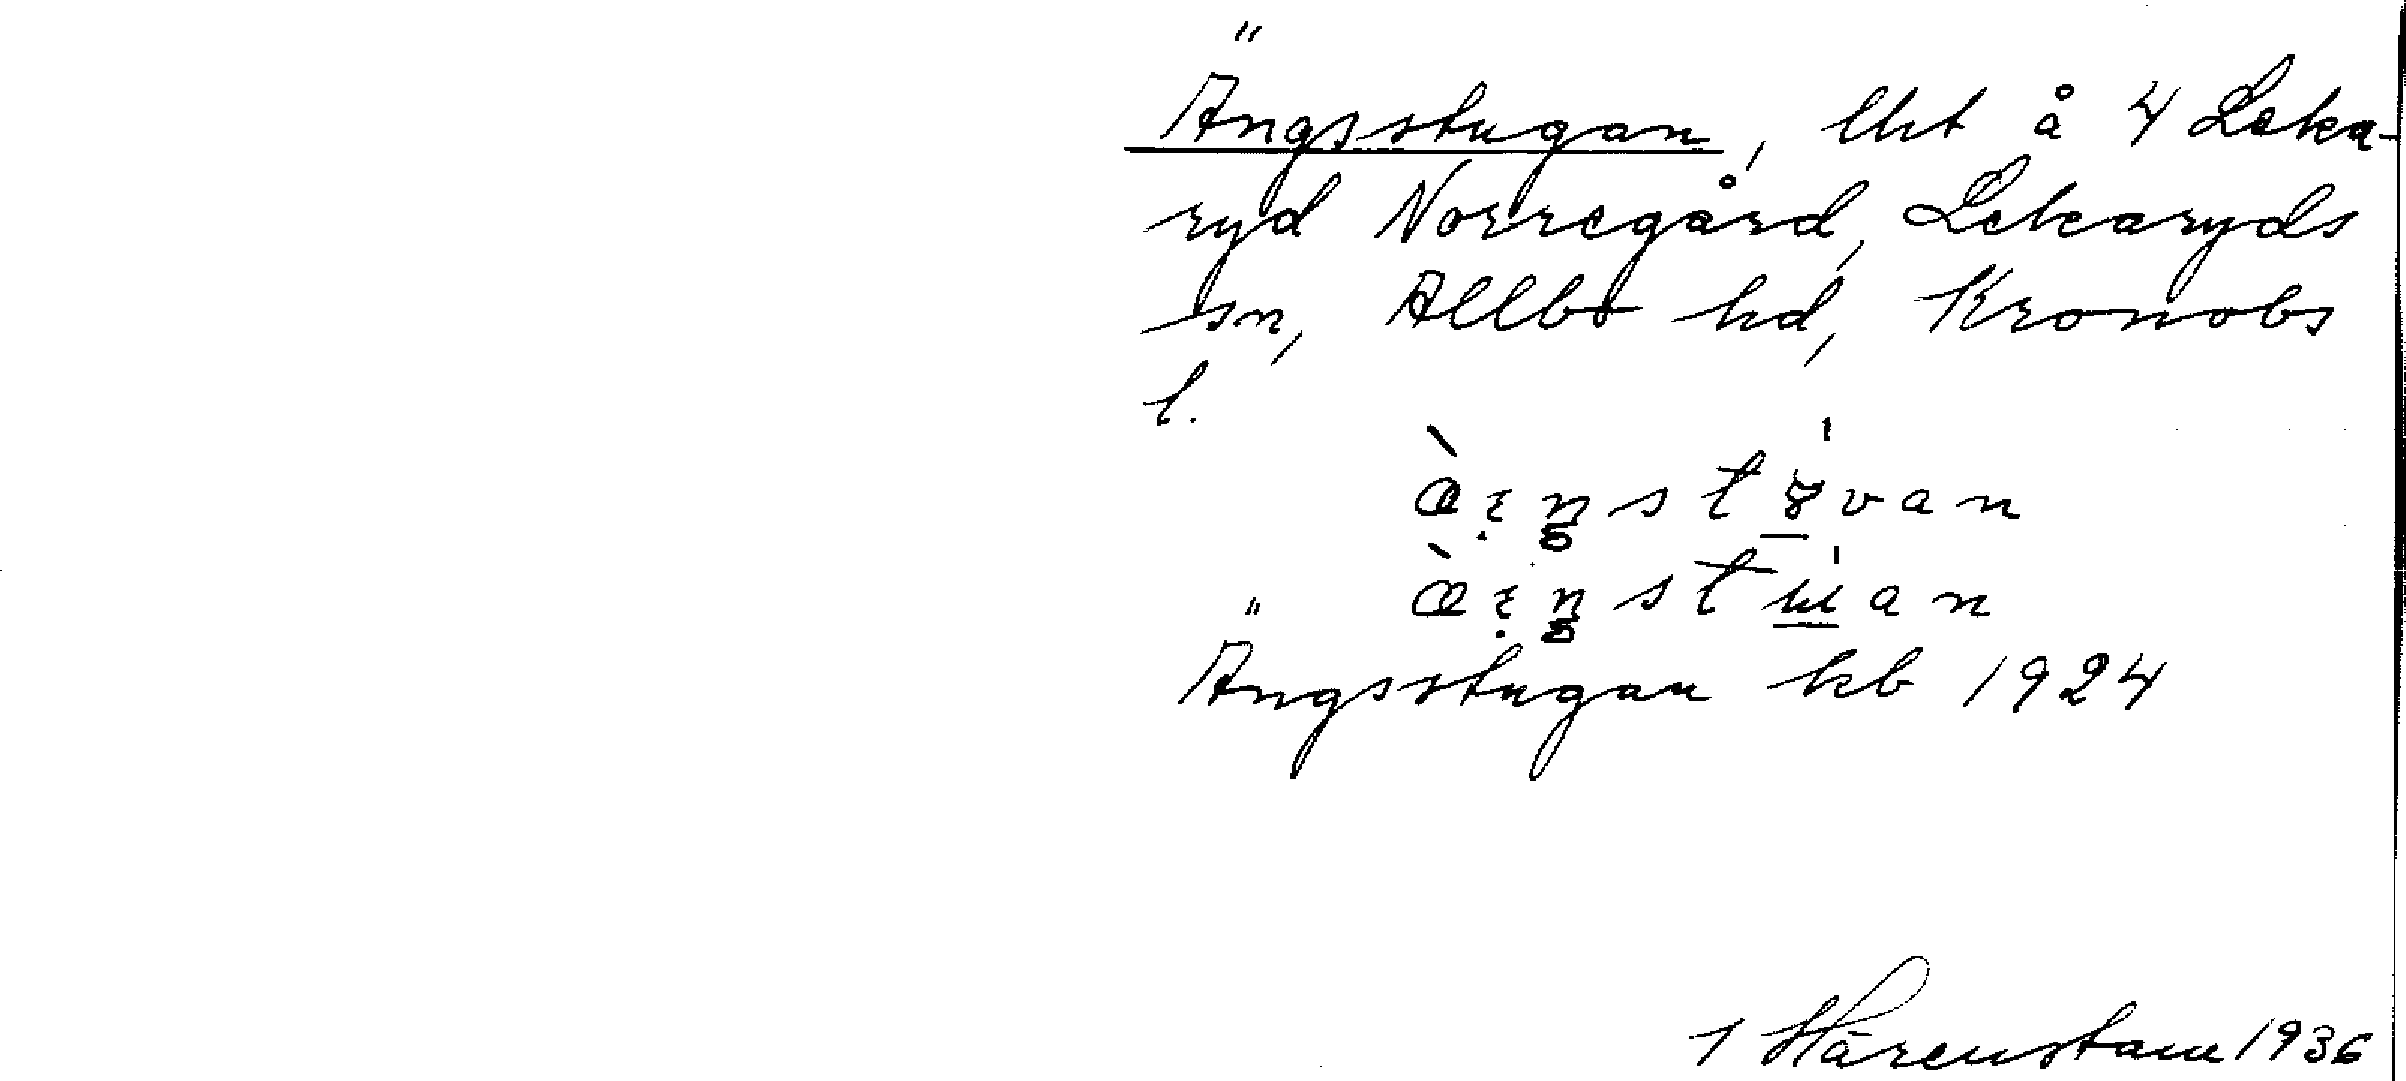 Ängsstugan, lht å 4 Leka-
ryd Norregård, Lekaryds
sn, Allbo hd, Kronobs
l.
Ängsstugan kb 1924
Härenstam 1936